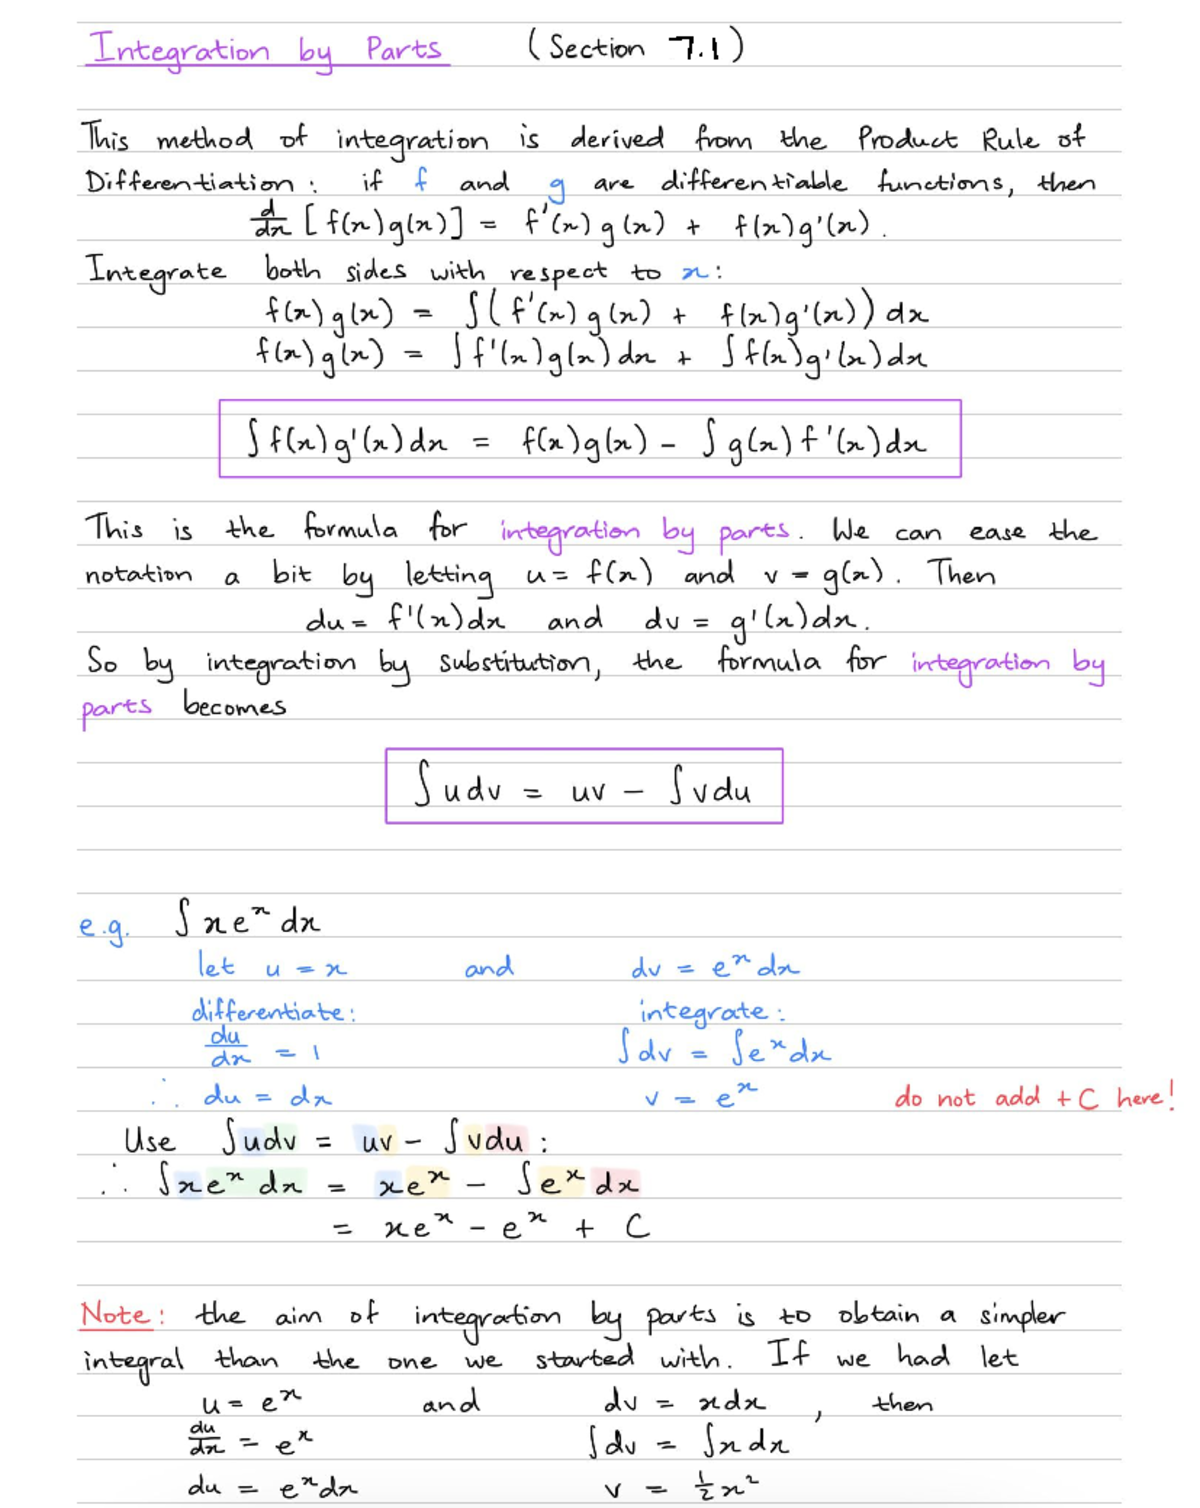 Integration by Parts (Section 7.1)
This method of integration is derived from the Product Rule of
Differentiation: if f and g are differentiable functions, then
d/dx [f(x)g(x)] = f'(x)g(x) + f(x)g'(x).
Integrate both sides with respect to x:
f(x)g(x) = ∫(f'(x)g(x) + f(x)g'(x))dx
f(x)g(x) = ∫f'(x)g(x)dx + ∫f(x)g'(x)dx
∫f(x)g'(x)dx = f(x)g(x) - ∫g(x)f'(x)dx
This is the formula for integration by parts. We can ease the
notation a bit by letting u = f(x) and v = g(x). Then
du = f'(x)dx and dv = g'(x)dx.
So by integration by substitution, the formula for integration by
parts becomes
∫udv = uv - ∫vdu
e.g. ∫xeˣdx
let u = x and dv = eˣdx
differentiate: integrate:
du/dx = 1 ∫dv = ∫eˣdx
∴ du = dx v = eˣ do not add +C here!
Use ∫udv = uv - ∫vdu:
∴ ∫xeˣdx = xeˣ - ∫eˣdx
= xeˣ - eˣ + C
Note: the aim of integration by parts is to obtain a simpler
integral than the one we started with. If we had let
u = eˣ and dv = xdx, then
du/dx = eˣ ∫dv = ∫xdx
du = eˣdx v = ½x²